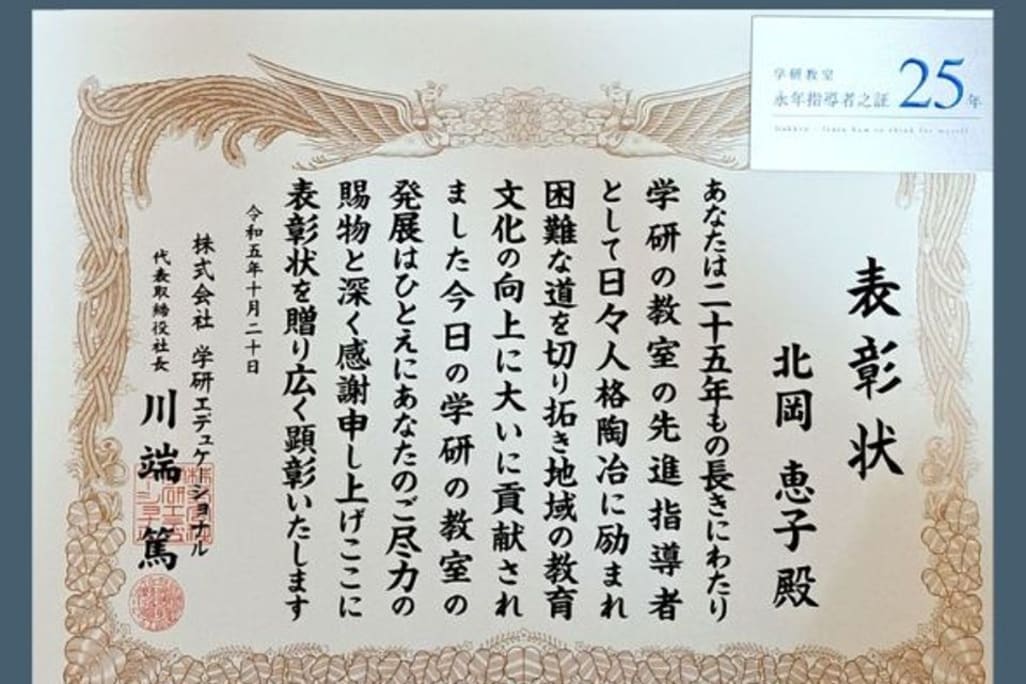 表彰状
北岡 恵子 殿
あなたは二十五年もの長きにわたり
学研の教室の先進指導者
として日々人格陶冶に励まれ
困難な道を切り拓き地域の教育
文化の向上に大いに貢献され
ました今日の学研の教室の
発展はひとえにあなたのご尽力の
賜物と深く感謝申し上げここに
表彰状を贈り広く顕彰いたします
令和五年十月二十日
株式会社 学研エデュケーショナル
代表取締役社長 川端 篤
学研教室
永年指導者之証 25年